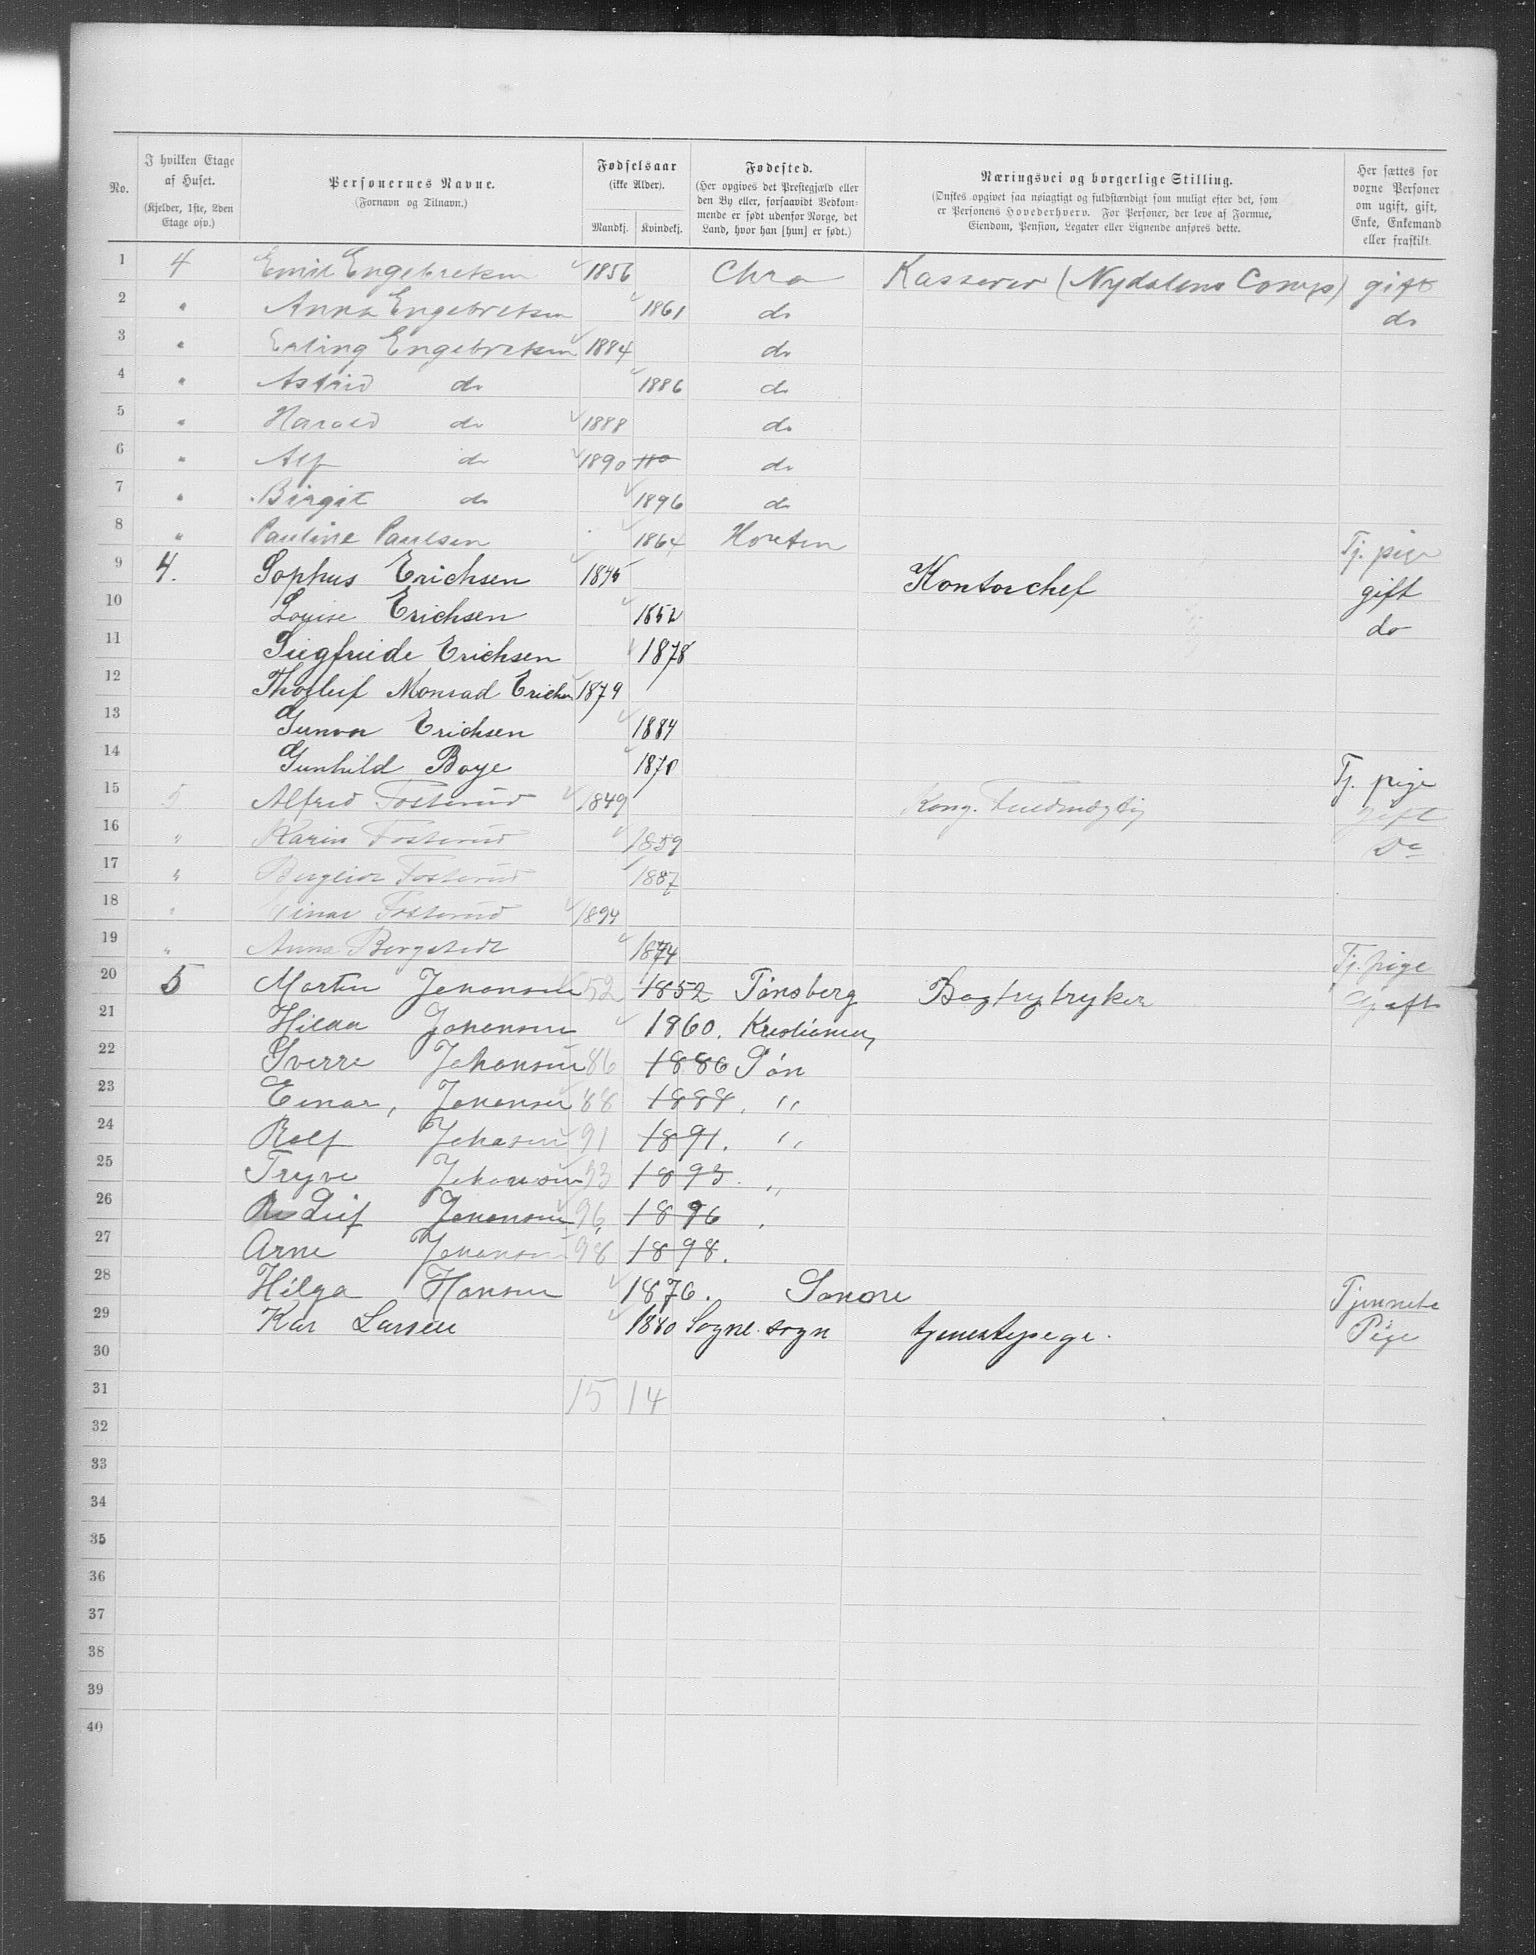 No. I hvilken Etage af Huset. (Kjelder, 1ste, 2den Etage osv.) Personernes Navne. (Fornavn og Tilnavn.) Fødselsaar (ikke Alder). Mandkj. Kvindekj. Fødested. (Her opgives det Prestegjæld eller den By eller, forsaavidt Vedkommende er født udenfor Norge, det Land, hvor han [hun] er født.) Næringsvei og borgerlige Stilling. (Ønskes opgivet saa nøiagtigt og fuldstændigt som muligt efter det, som er Personens Hovederhverv. For Personer, der leve af Formue, Eiendom, Pension, Legater eller Lignende anføres dette. Her sættes for voxne Personer om ugift, gift, Enke, Enkemand eller fraskilt.
1 4 Emil Engebretsen 1856 Chra Kasserer (Nydalens Comp) gift
2 " Anna Engebretsen 1861 do do
3 " Erling Engebretsen 1884 do
4 " Astrid do 1886 do
5 " Harald do 1888 do
6 " Alf do 1890 do
7 " Birgit do 1896 do
8 " Pauline Paulsen 1864 Horten Tj. pige
9 4. Sophus Erichsen 1845 Kontorchef gift
10 Louise Erichsen 1852 do
11 Siegfriede Erichsen 1878
12 Thorluf Monrad Erichsen 1879
13 Gunvor Erichsen 1884
14 Gunhild Boye 1870 Tj. pige
15 5 Alfred Fosterud 1849 Kong. Fuldmægtig gift
16 " Karin Fosterud 1859 Do
17 " Fosterud 1887
18 " Einar Fosterud 1894
19 " Anna Bergstedt 1874 Tj. pige
20 5 Martin Johansen 52 1852 Tønsberg Bogtrytryker Gift
21 Hilda Johansen 1860. Kristiania
22 Sverre Johansen 86 1886 Tøn
23 Einar, Johansen 88 1888. "
24 Rolf Johasen 91 1891. "
25 Tryve Johansen 93 1893. "
26 Leif Johansen 96 1896
27 Arne Johansen 98 1898.
28 Hilga Hansen 1876. Sanore Tjenneste
29 Kar Larsen 1880 Sogne sogn tjenestepege. Pige
30
31 15 14
32
33
34
35
36
37
38
39
40